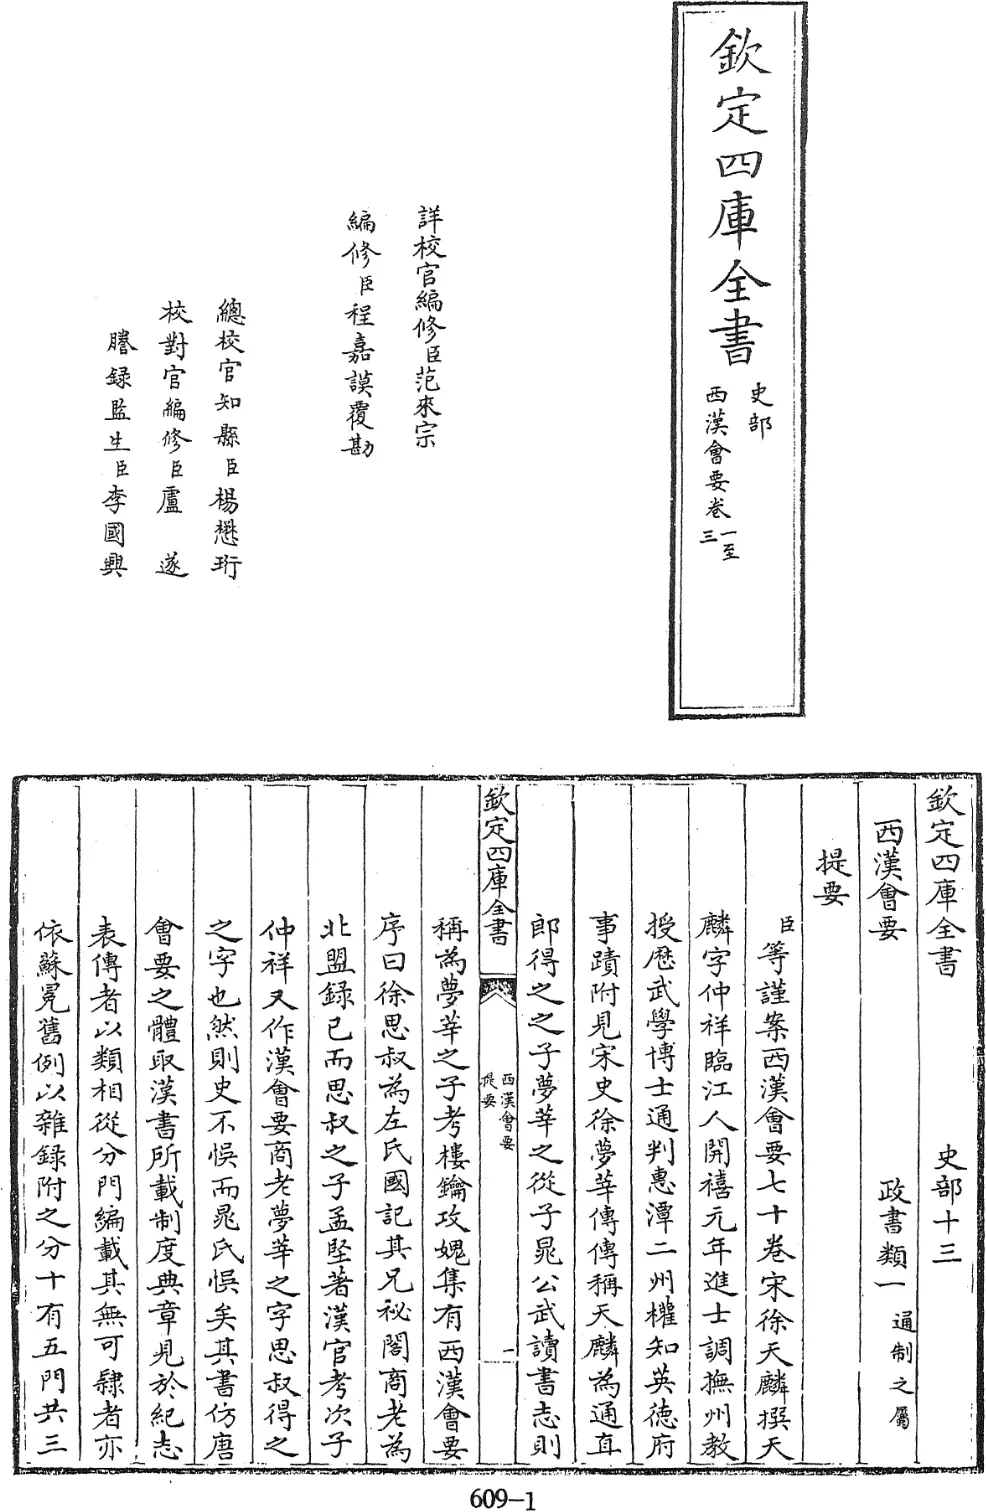 欽定四庫全書
史部
西漢會要卷一至三
詳校官編修臣范來宗
編修臣程嘉謨覆勘
總校官知縣臣楊懋珩
校對官編修臣盧遂
謄錄監生臣李國興
欽定四庫全書 史部十三
西漢會要 政書類一 通制之屬
提要
臣等謹案西漢會要七十卷宋徐天麟撰天
麟字仲祥臨江人開禧元年進士調撫州教
授歴武學博士通判惠潭二州權知英德府
事蹟附見宋史徐夢莘傳傳稱天麟為通直
郎得之之子夢莘之從子晁公武讀書志則
欽定四庫全書
西漢會要
提要
一
稱為夢莘之子考樓鑰攻媿集有西漢會要
序曰徐思叔為左氏國記其兄秘閣商老為
北盟録已而思叔之子孟堅著漢官考次子
仲祥又作漢會要商老夢莘之字思叔得之
之字也然則史不悞而晁氏悞矣其書仿唐
會要之體取漢書所載制度典章見於紀志
表傳者以類相從分門編載其無可隸者亦
依蘇冕舊例以雜録附之分十有五門共三
609-1